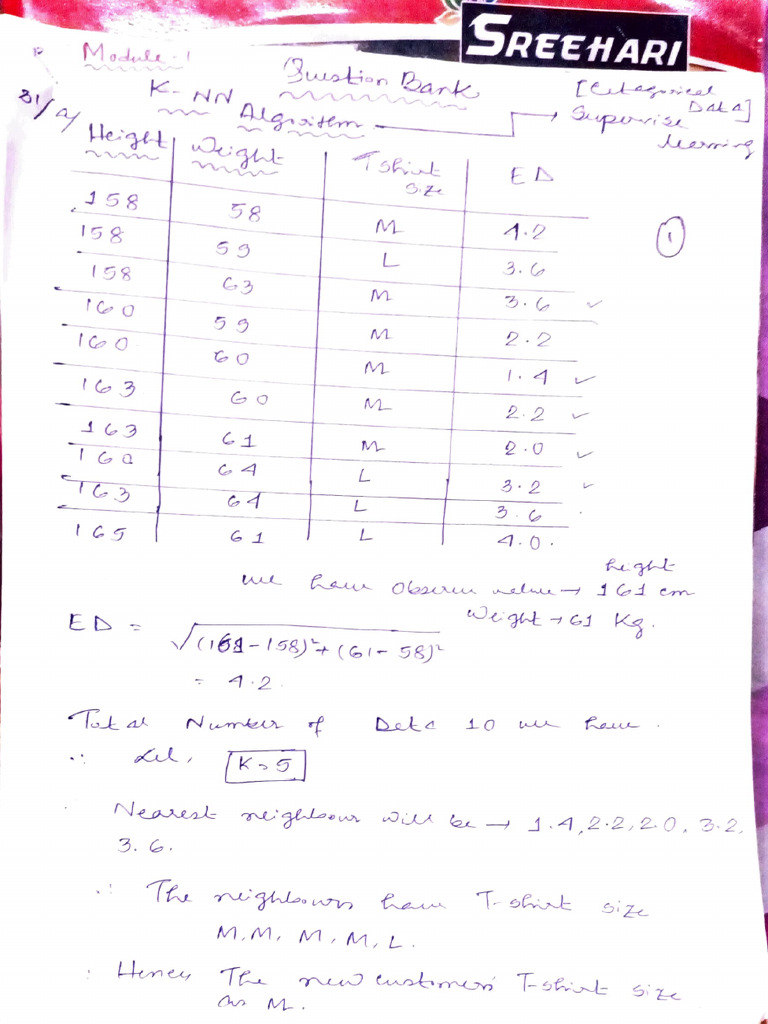 SREEHARI
Module - 1
Question Bank
31/
K- NN Algroitem → [Categorical Data]
Supervise learning
Height | Weight | Tshirt size | ED
158 | 58 | M | 4.2
①
158 | 59 | L | 3.6
158 | 63 | M | 3.6 ✓
160 | 59 | M | 2.2
160 | 60 | M | 1.4 ✓
163 | 60 | M | 2.2 ✓
163 | 61 | M | 2.0 ✓
160 | 64 | L | 3.2 ✓
163 | 64 | L | 3.6
165 | 61 | L | 4.0.
we have observe value → height 161 cm
Weight → 61 Kg.
ED = √(161-158)²+(61-58)²
= 4.2.
Total Number of Data 10 we have.
∴ Let, K=5
Nearest neighbour will be → 1.4, 2.2, 2.0, 3.2,
3.6.
∴ The neighbours have T-shirt size
M, M, M, M, L.
∴ Hence, The new customers T-shirt size
as M.